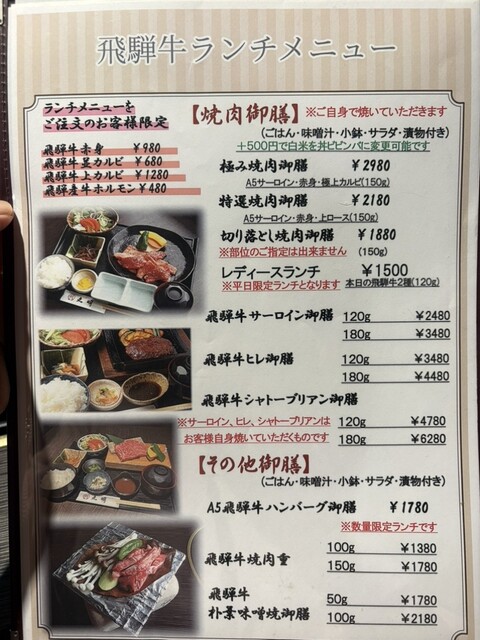 飛騨牛ランチメニュー
ランチメニューを
ご注文のお客様限定
飛騨牛赤身 ￥980
飛騨牛並カルビ ￥680
飛騨牛上カルビ ￥1280
飛騨産牛ホルモン ￥480
【焼肉御膳】 ※ご自身で焼いていただきます
（ごはん・味噌汁・小鉢・サラダ・漬物付き）
＋500円で白米を丼ビビンバに変更可能です
極み焼肉御膳 ￥2980
A5サーロイン・赤身・極上カルビ(150g)
特選焼肉御膳 ￥2180
A5サーロイン・赤身・上ロース(150g)
切り落とし焼肉御膳 ￥1880
※部位のご指定は出来ません (150g)
レディースランチ ￥1500
※平日限定ランチとなります 本日の飛騨牛2種(120g)
飛騨牛サーロイン御膳 120g ￥2480
180g ￥3480
飛騨牛ヒレ御膳 120g ￥3480
180g ￥4480
飛騨牛シャトーブリアン御膳
※サーロイン、ヒレ、シャトーブリアンは 120g ￥4780
お客様自身焼いていただくものです 180g ￥6280
【その他御膳】
（ごはん・味噌汁・小鉢・サラダ・漬物付き）
A5飛騨牛ハンバーグ御膳 ￥1780
※数量限定ランチです
飛騨牛焼肉重 100g ￥1380
150g ￥1780
飛騨牛 50g ￥1780
朴葉味噌焼御膳 100g ￥2180